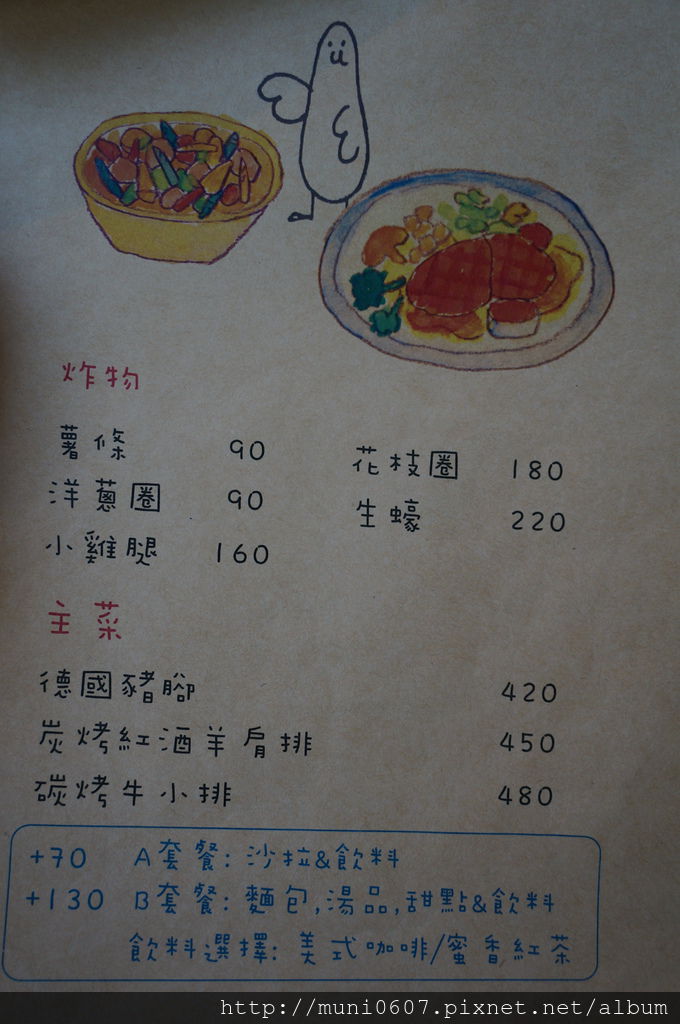 炸物
薯條 90
洋蔥圈 90
小雞腿 160
花枝圈 180
生蠔 220
主菜
德國豬腳 420
炭烤紅酒羊肩排 450
碳烤牛小排 480
+70 A套餐: 沙拉&飲料
+130 B套餐: 麵包,湯品,甜點&飲料
飲料選擇: 美式咖啡/蜜香紅茶
http://muni0607.pixnet.net/album